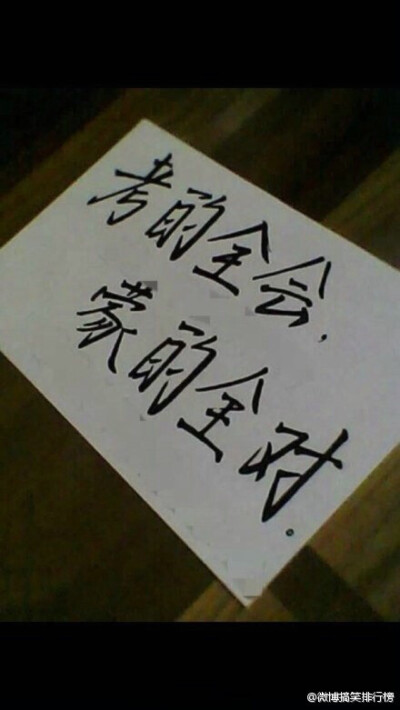 考的全会,
蒙的全对。
@微博搞笑排行榜